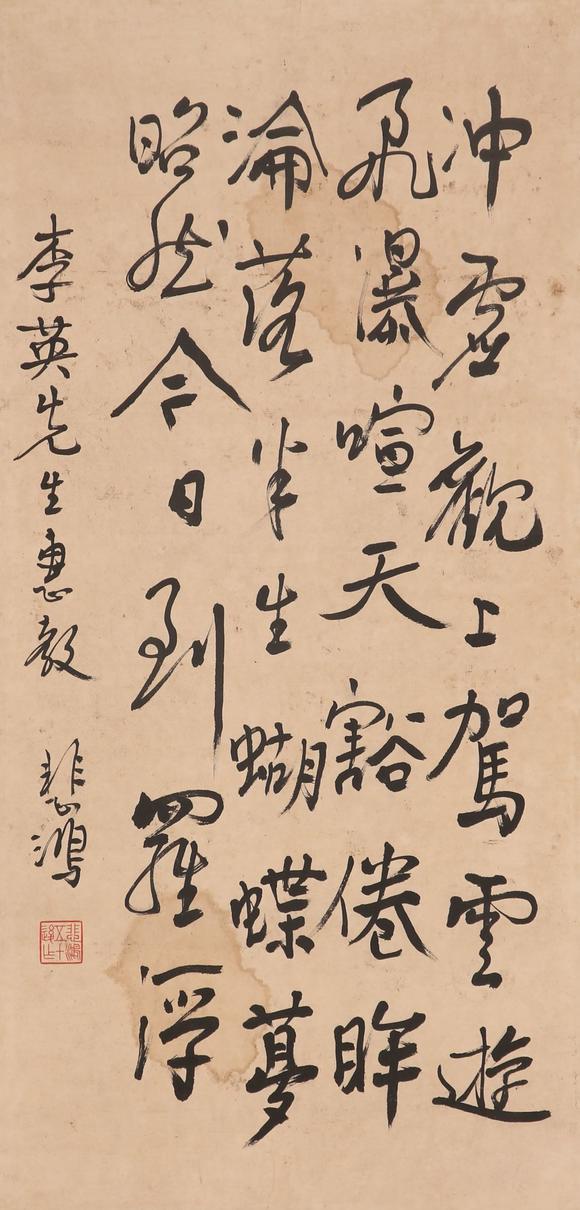 冲虛觀上駕雲遊
飛瀑喧天豁倦眸
淪落半生蝴蝶夢
昭然今日到羅浮
李英先生惠教 悲鴻